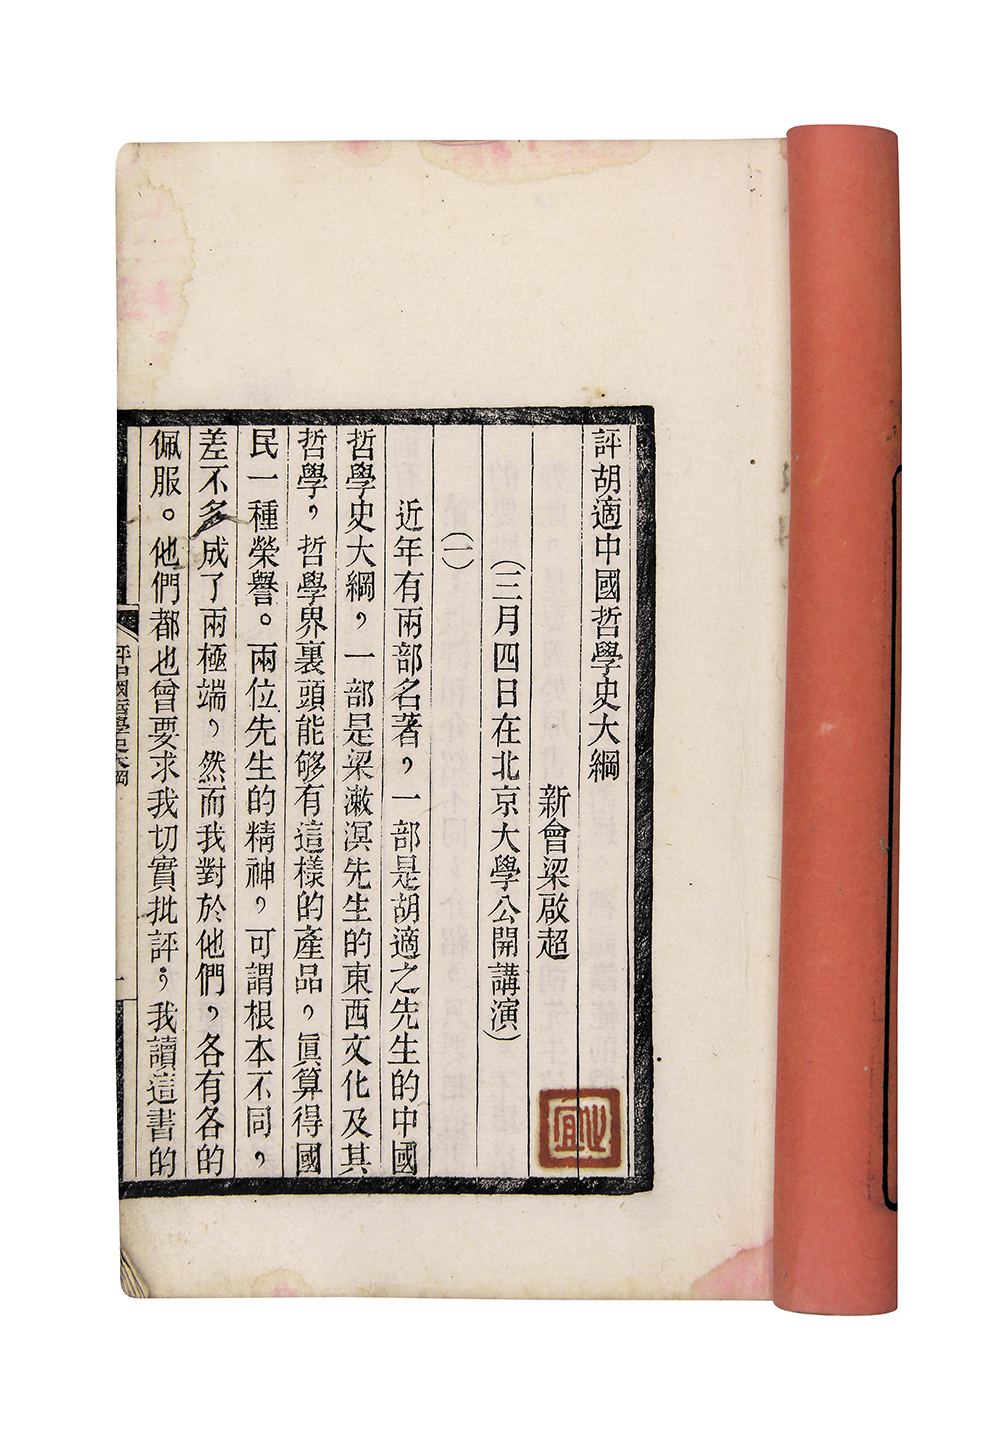 評胡適中國哲學史大綱
新會梁啟超
（三月四日在北京大學公開講演）
（一）
近年有兩部名著，一部是胡適之先生的中國
哲學史大綱，一部是梁漱溟先生的東西文化及其
哲學，哲學界裏頭能够有這樣的產品，眞算得國
民一種榮譽。兩位先生的精神，可謂根本不同，
差不多成了兩極端，然而我對於他們，各有各的
佩服。他們都也曾要求我切實批評，我讀這書的
評中國哲學史大綱
一